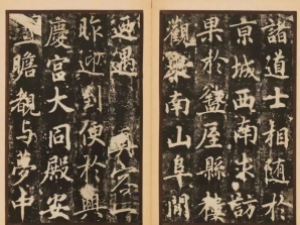 諸道士相隨於
京城西南求訪
果於盩厔縣樓
觀東南山阜間
迺遇真容一
昨迎到便於興
慶宮大同殿安
瞻覩与夢中